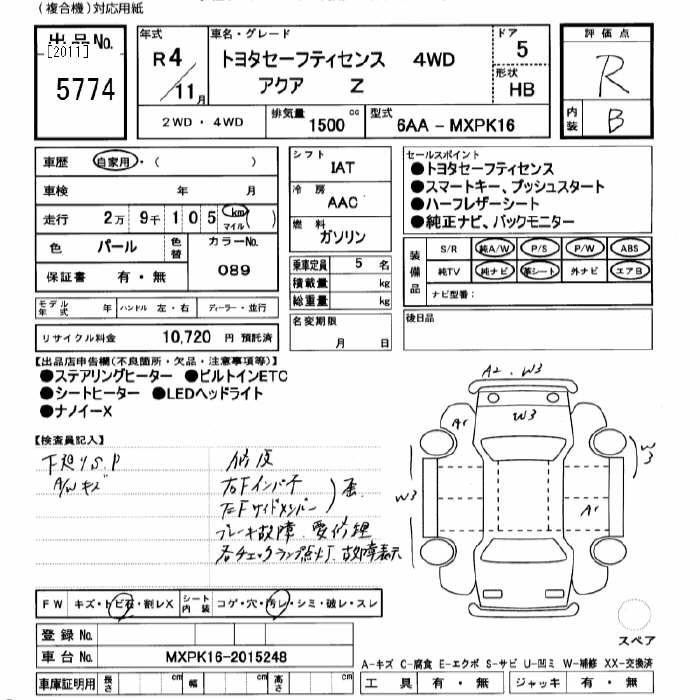 (複合機)対応用紙
出品No.
[2011]
5774
年式
R4/11月
車名・グレード
トヨタセーフティセンス 4WD
アクア Z
ドア
5
形状
HB
評価点
R
内装
B
2WD・4WD
排気量
1500 cc
型式
6AA-MXPK16
車歴 自家用・( )
車検 年 月
走行 2万 9千 1 0 5 km マイル ( )
色 パール 色替 カラーNo.
089
保証書 有・無
シフト
IAT
冷房
AAC
燃料
ガソリン
乗車定員 5 名
積載量 kg
総重量 kg
セールスポイント
●トヨタセーフティセンス
●スマートキー、プッシュスタート
●ハーフレザーシート
●純正ナビ、バックモニター
装備品
S/R 純A/W P/S P/W ABS
純TV 純ナビ 革シート 外ナビ エアB
ナビ型番:
モデル年式 年 ハンドル 左・右 ディーラー・並行
名変期限
月 日
後日品
リサイクル料金 10,720 円 預託済
【出品店申告欄(不良箇所・欠品・注意事項等)】
●ステアリングヒーター ●ビルトインETC
●シートヒーター ●LEDヘッドライト
●ナノイーX
【検査員記入】
下廻りS.P
A/Wキズ
修復
右Fインパネ
左Fサイドメンバー
歪
ブレーキ故障、要修理
各チェックランプ点灯、故障表示
A2・W3
A1
W3
W3
W3
A1
スペア
FW キズ・トビ石・割レX シート内装 コゲ・穴・汚レ・シミ・破レ・スレ
登録No.
車台No. MXPK16-2015248
車庫証明用 長さ cm 幅 cm 高さ cm
A-キズ C-腐食 E-エクボ S-サビ U-凹ミ W-補修 XX-交換済
工具 有・無 ジャッキ 有・無